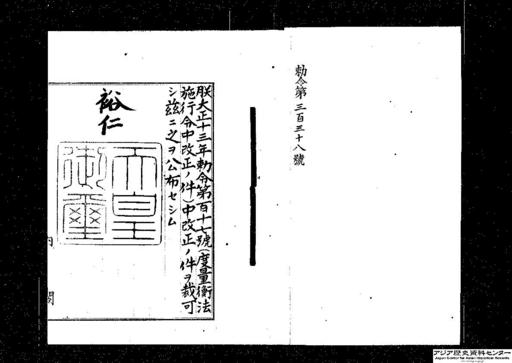 勅令第三百三十八號
朕大正十三年勅令第百十七號(度量衡法
施行令中改正ノ件)中改正ノ件ヲ裁可
シ茲ニ之ヲ公布セシム
裕仁
天皇
御璽
内閣
アジア歴史資料センター
Japan Center for Asian Historical Records